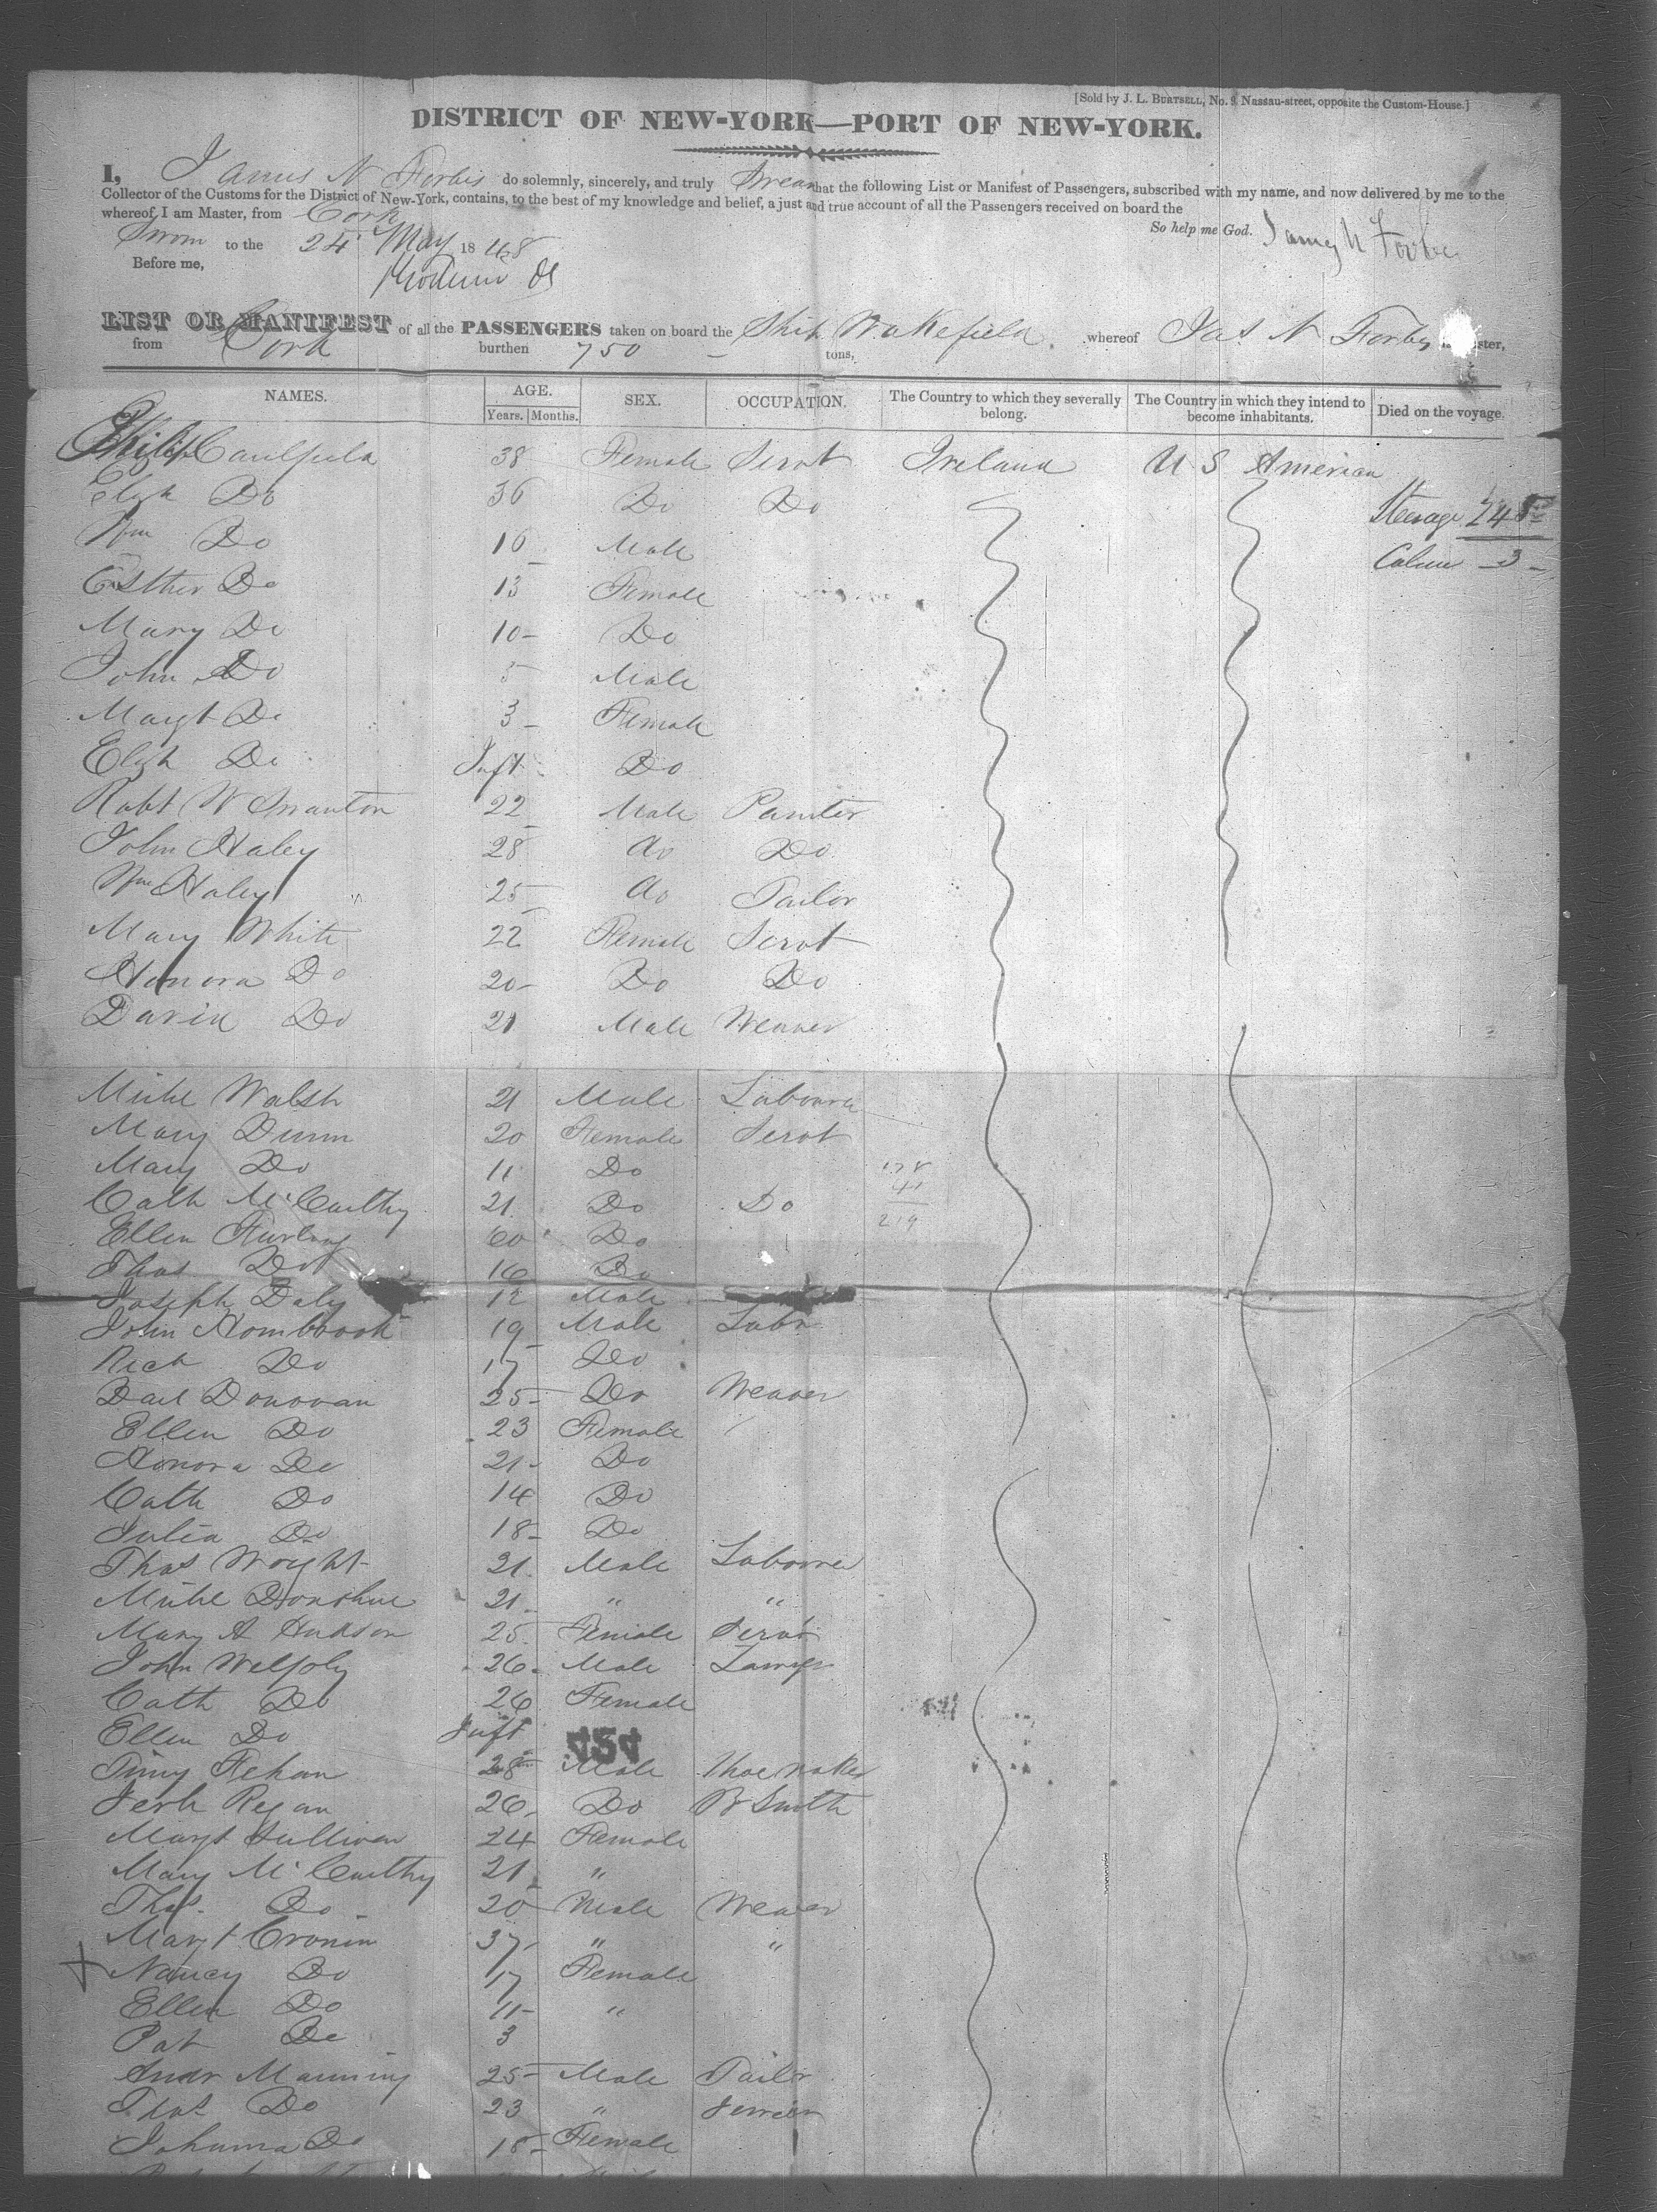 [Sold by J. L. BURTSELL, No. 9 Nassau-street, opposite the Custom-House.]
DISTRICT OF NEW-YORK—PORT OF NEW-YORK.
I, James N Forbes do solemnly, sincerely, and truly Swear that the following List or Manifest of Passengers, subscribed with my name, and now delivered by me to the
Collector of the Customs for the District of New-York, contains, to the best of my knowledge and belief, a just and true account of all the Passengers received on board the
whereof, I am Master, from Cork
So help me God. James N Forbes
Sworn to the 24 May 1848
Before me,
LIST OR MANIFEST of all the PASSENGERS taken on board the Ship Wakefield whereof Jas N Forbes
from Cork burthen 750 tons,
NAMES. AGE. Years. Months. SEX. OCCUPATION. The Country to which they severally belong. The Country in which they intend to become inhabitants. Died on the voyage.
Philip Caulfield 38 Female Servt Ireland U S American
Elizh Do 36 Do Do
Steerage 248
Wm Do 16 Male
Cabin 3
Esther Do 13 Female
Mary Do 10 Do
John Do 5 Male
Margt Do 3 Female
Elizh Do Inft Do
Robt W Swanton 22 Male Painter
John Haley 28 do Do
Wm Haley 25 do Tailor
Mary White 22 Female Servt
Honora Do 20 Do Do
David Do 21 Male Weaver
Michl Walsh 21 Male Labourer
Mary Dunn 20 Female Servt
Mary Do 11 Do
178
41
219
Cath McCarthy 21 Do Do
Ellen Furlong 60 Do
Thos Do 16 Do
Joseph Daly 12 Male
John Hornbrook 19 Male Labr
Rich Do 17 Do
Danl Donovan 25 Do Weaver
Ellen Do 23 Female
Honora Do 21 Do
Cath Do 14 Do
Julia Do 18 Do
Thos Wright 21 Male Labourer
Michl Donohue 21 " "
Mary A Hudson 25 Female Servt
John Welply 26 Male Lawyer
Cath Do 26 Female
Ellen Do Inft
454
Timy Fehan 28 Male Shoemaker
Jerh Regan 26 Do B Smith
Margt Sullivan 24 Female
Mary McCarthy 21 "
Thos. Do 20 Male Weaver
Margt Cronin 37 " "
+ Nancy Do 17 Female
Ellen Do 11 "
Pat Do 3
Andr Manning 25 Male Tailor
Thos Do 23 "
Johanna Do 18 Female